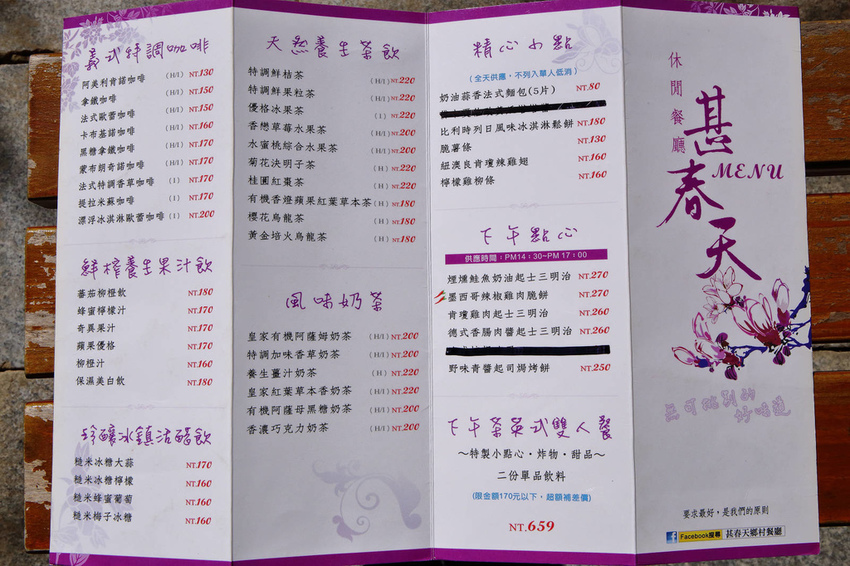 義式特調咖啡
阿美利肯諾咖啡 (H/I) NT.130
拿鐵咖啡 (H/I) NT.150
法式歐蕾咖啡 (H/I) NT.150
卡布基諾咖啡 (H/I) NT.160
黑糖拿鐵咖啡 (H/I) NT.170
蒙布朗奇諾咖啡 (H/I) NT.170
法式特調香草咖啡 (I) NT.170
提拉米蘇咖啡 (I) NT.170
漂浮冰淇淋歐蕾咖啡 (I) NT.200
鮮榨養生果汁飲
蕃茄柳橙飲 NT.180
蜂蜜檸檬汁 NT.170
奇異果汁 NT.170
蘋果優格 NT.170
柳橙汁 NT.160
保濕美白飲 NT.180
珍釀冰鎮活醋飲
糙米冰糖大蒜 NT.170
糙米冰糖檸檬 NT.160
糙米蜂蜜葡萄 NT.160
糙米梅子冰糖 NT.160
天然養生茶飲
特調鮮桔茶 (H/I) NT.220
特調鮮果粒茶 (H/I) NT.220
優格冰果茶 (I) NT.220
香戀草莓水果茶 (H/I) NT.220
水蜜桃綜合水果茶 (H/I) NT.220
菊花決明子茶 (H) NT.220
桂圓紅棗茶 (H) NT.220
有機香橙蘋果紅葉草本茶 (H) NT.180
櫻花烏龍茶 (H) NT.180
黃金培火烏龍茶 (H) NT.180
風味奶茶
皇家有機阿薩姆奶茶 (H/I) NT.200
特調加味香草奶茶 (H/I) NT.200
養生薑汁奶茶 (H) NT.220
皇家紅葉草本香奶茶 (H/I) NT.220
有機阿薩母黑糖奶茶 (H/I) NT.200
香濃巧克力奶茶 (H/I) NT.200
精心小點
(全天供應，不列入單人低消)
奶油蒜香法式麵包(5片) NT.80
比利時列日風味冰淇淋鬆餅 NT.180
脆薯條 NT.130
紐澳良肯塔辣雞翅 NT.160
檸檬雞柳條 NT.160
下午點心
供應時間：PM14：30~PM17：00
煙燻鮭魚奶油起士三明治 NT.270
墨西哥辣椒雞肉脆餅 NT.270
肯塔雞肉起士三明治 NT.260
德式香腸肉醬起士三明治 NT.260
野味青醬起司焗烤餅 NT.250
下午茶英式雙人餐
～特製小點心·炸物·甜品～
二份單品飲料
(限金額170元以下，超額補差價)
NT.659
休閒餐廳
甚春天
MENU
無可挑剔的
好味道
要求最好，是我們的原則
f Facebook搜尋 甚春天鄉村餐廳